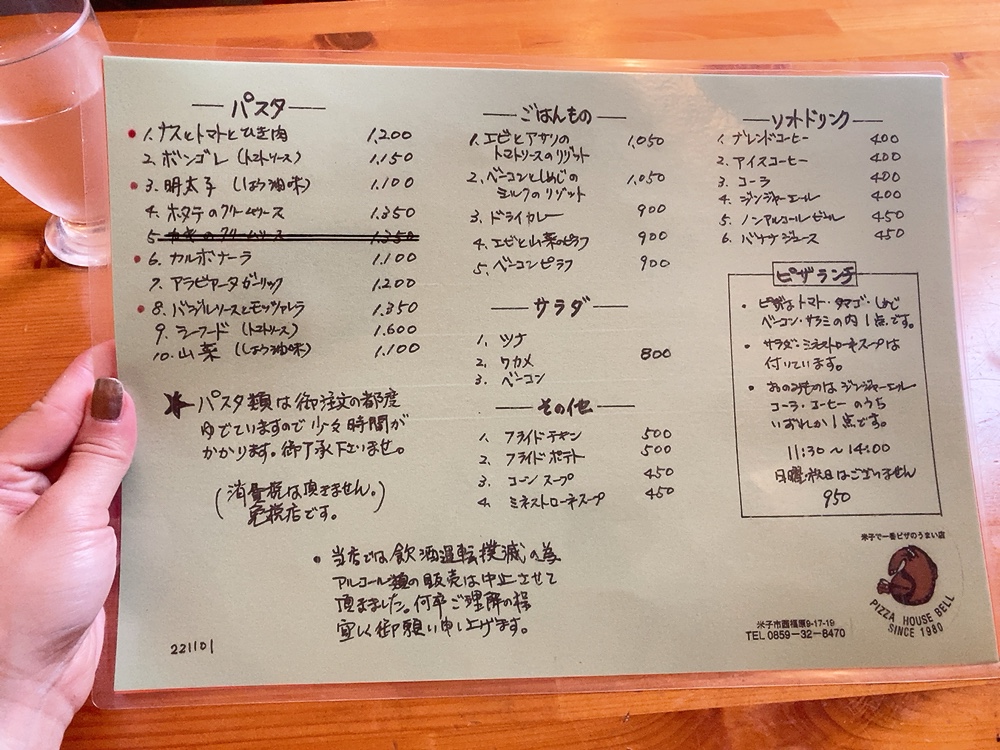 パスタ
1. ナスとトマトとひき肉 1,200
2. ボンゴレ (トマトソース) 1,150
3. 明太子 (しょう油味) 1,100
4. ホタテのクリームソース 1,350
5. カキのクリームソース 1,350
6. カルボナーラ 1,100
7. アラビアータガーリック 1,200
8. バジルソースとモッツァレラ 1,350
9. シーフード (トマトソース) 1,600
10. 山菜 (しょう油味) 1,100
パスタ類は御注文の都度
ゆでていますので少々時間が
かかります。御了承下さいませ。
(消費税は頂きません。)
免税店です。
ごはんもの
1. エビとアサリの 1,050
トマトソースのリゾット
2. ベーコンとしめじの 1,050
ミルクのリゾット
3. ドライカレー 900
4. エビと山菜のピラフ 900
5. ベーコンピラフ 900
サラダ
1. ツナ
2. ワカメ 800
3. ベーコン
その他
1. フライドチキン 500
2. フライドポテト 500
3. コーンスープ 450
4. ミネストローネスープ 450
ソフトドリンク
1. ブレンドコーヒー 400
2. アイスコーヒー 400
3. コーラ 400
4. ジンジャーエール 400
5. ノンアルコールビール 450
6. バナナジュース 450
ピザランチ
・ピザはトマト・タマゴ・しめじ
ベーコン・サラミの内1点です。
・サラダ・ミネストローネスープは
付いています。
・おのみものはジンジャーエール
コーラ・コーヒーのうち
いずれか1点です。
11:30〜14:00
日曜・祝日はございません
950
・当店では飲酒運転撲滅の為
アルコール類の販売は中止させて
頂きました。何卒ご理解の程
宜しく御願い申し上げます。
221101
米子で一番ピザのうまい店
PIZZA HOUSE BELL
SINCE 1980
米子市西福原9-17-19
TEL 0859-32-8470